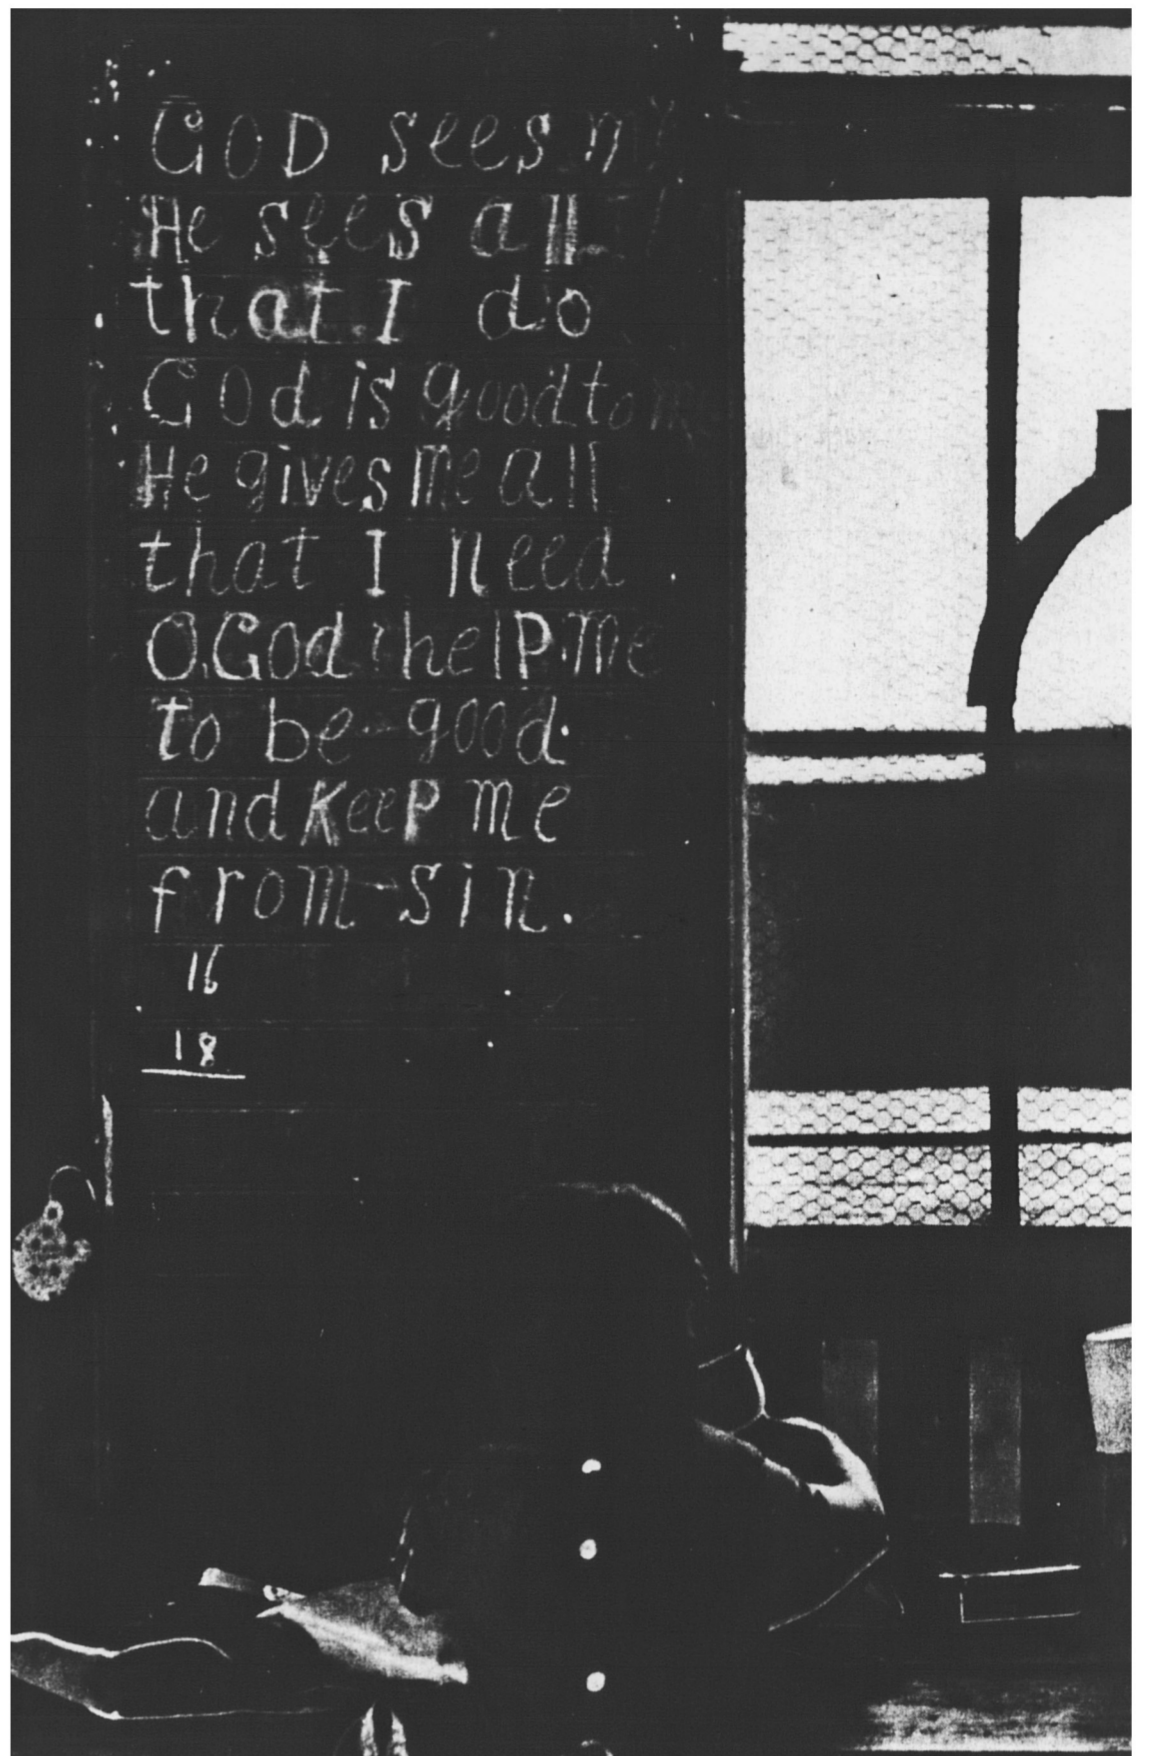 GOD sees me
He sees all
that I do
God is good to me
He gives me all
that I need
O.God help me
to be good.
and KeeP me
from sin.
16
18